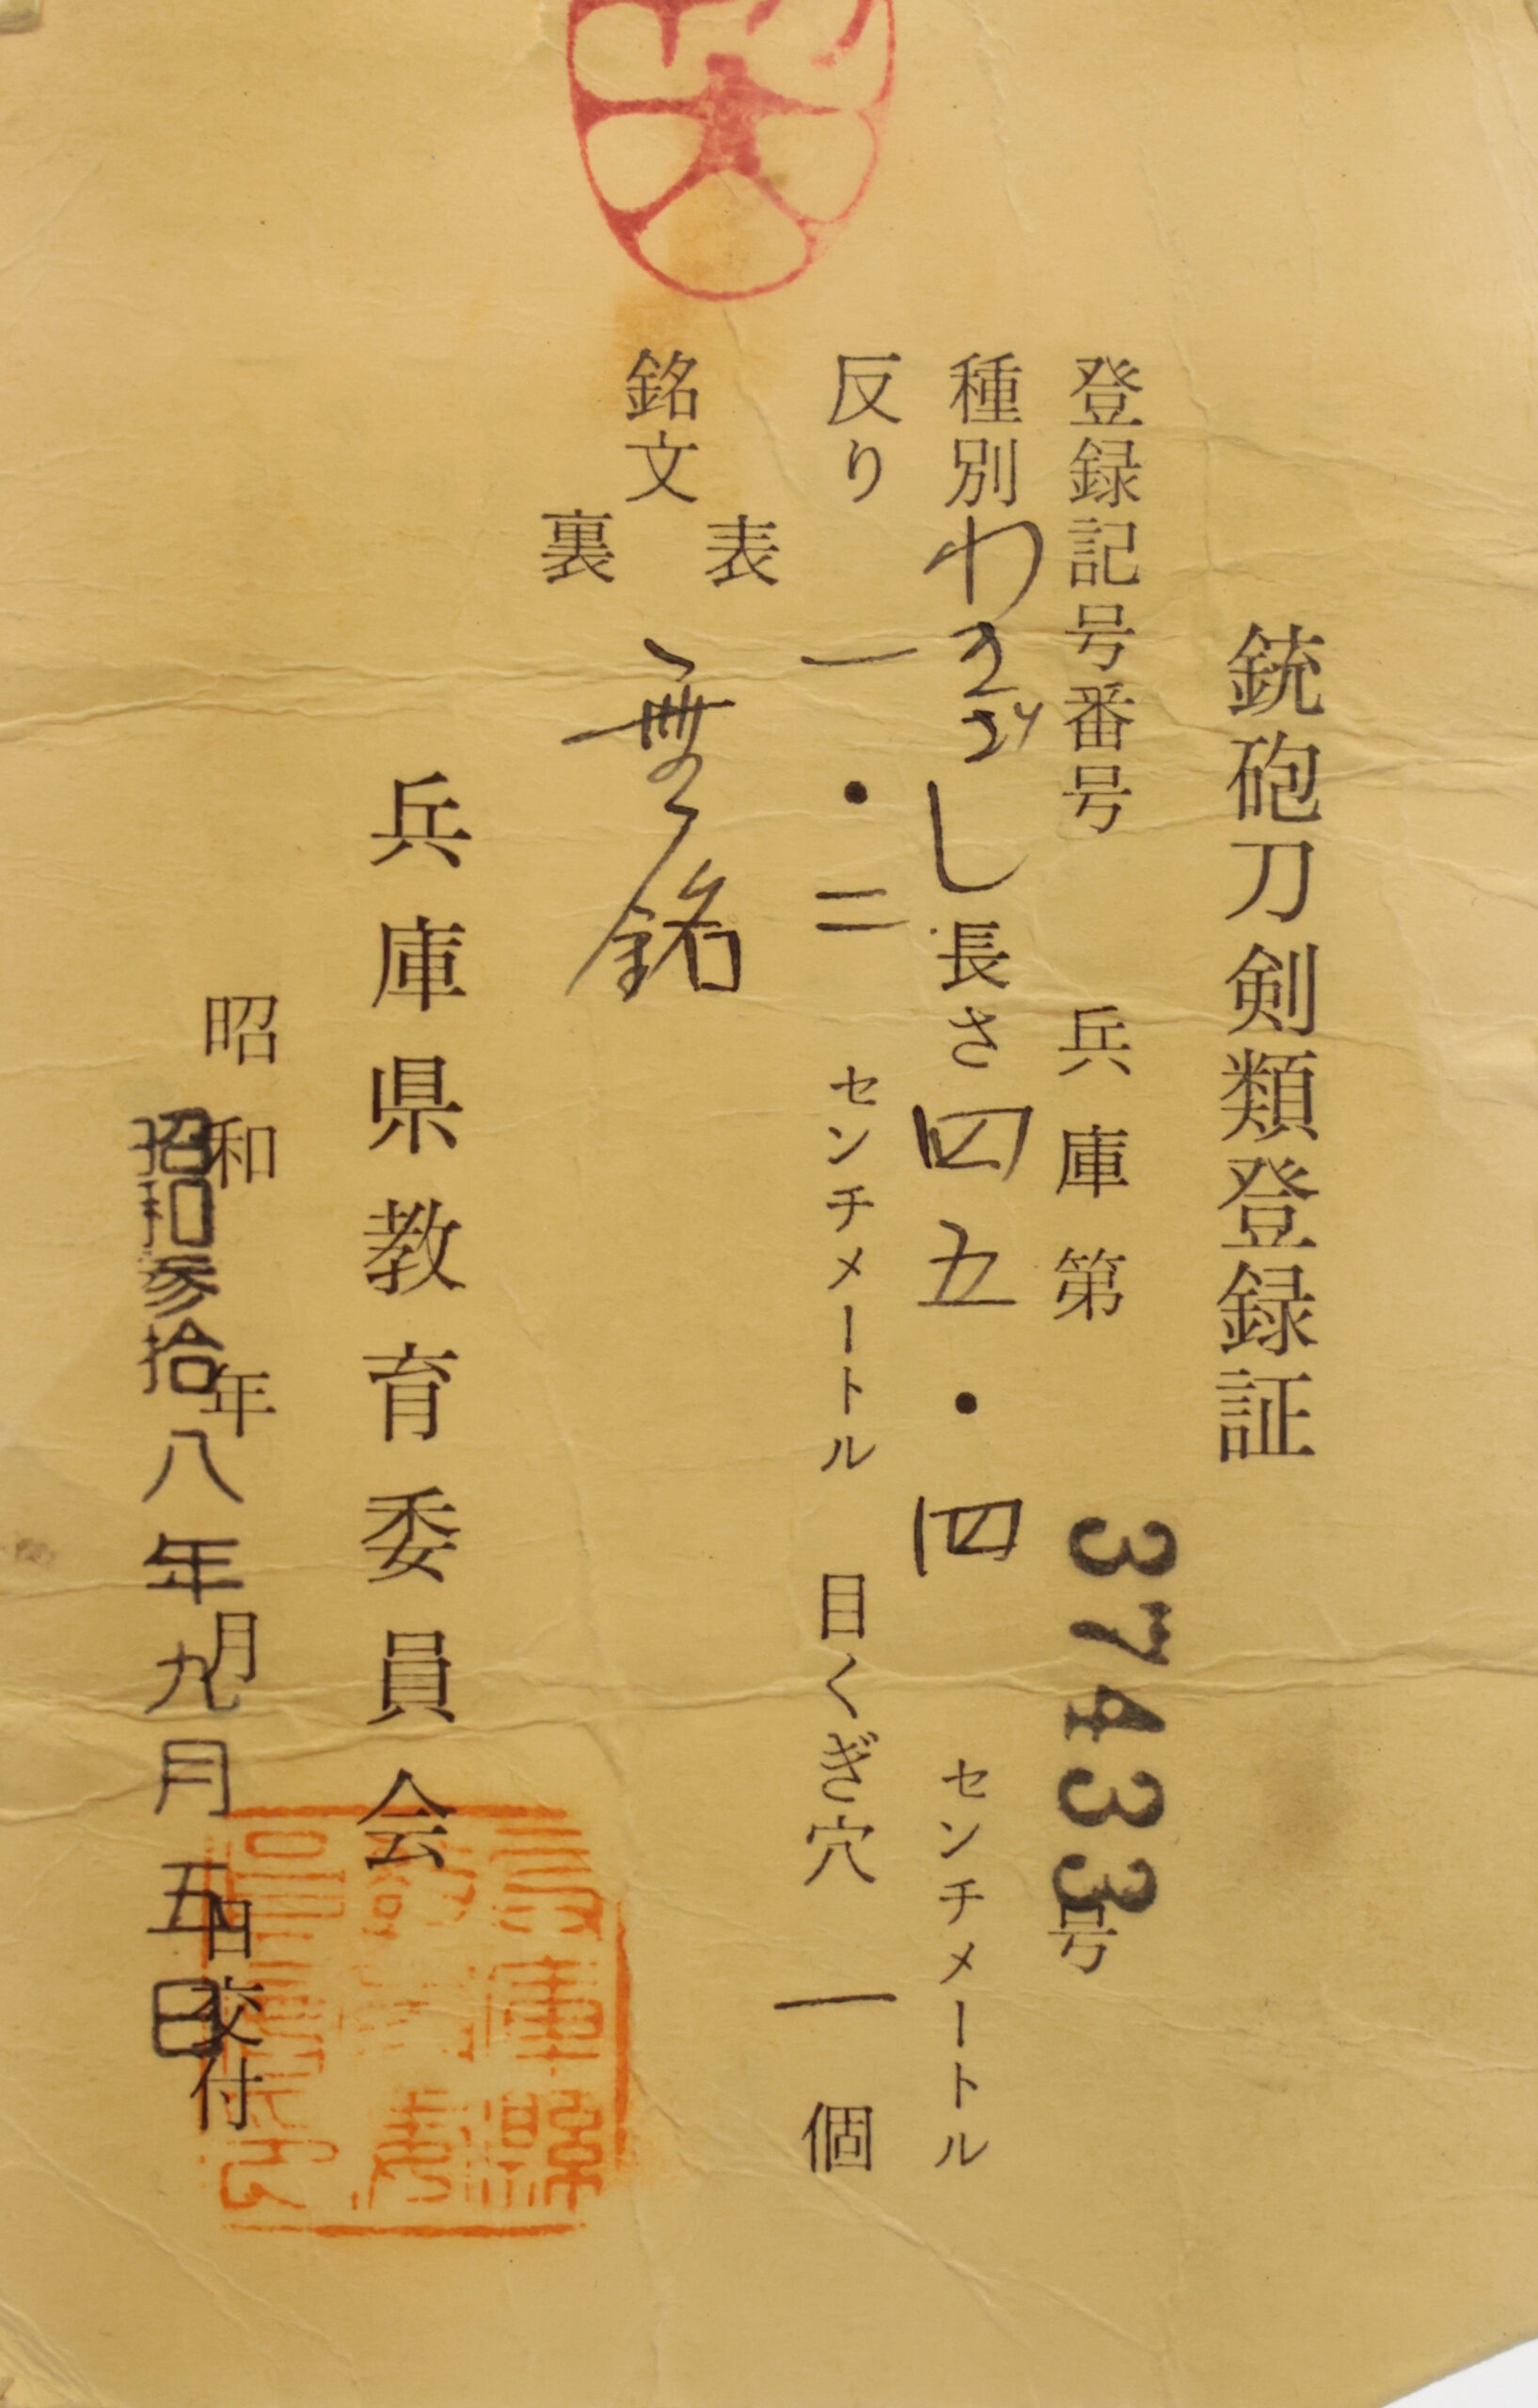 銃砲刀剣類登録証
登録記号番号 兵庫第 37433号
種別 わきざし 長さ 四五・四 センチメートル
反り 一・二 センチメートル 目くぎ穴 一 個
銘文 表 裏 無銘
兵庫県教育委員会
昭和 年 月 日交付
昭和参拾八年九月五日